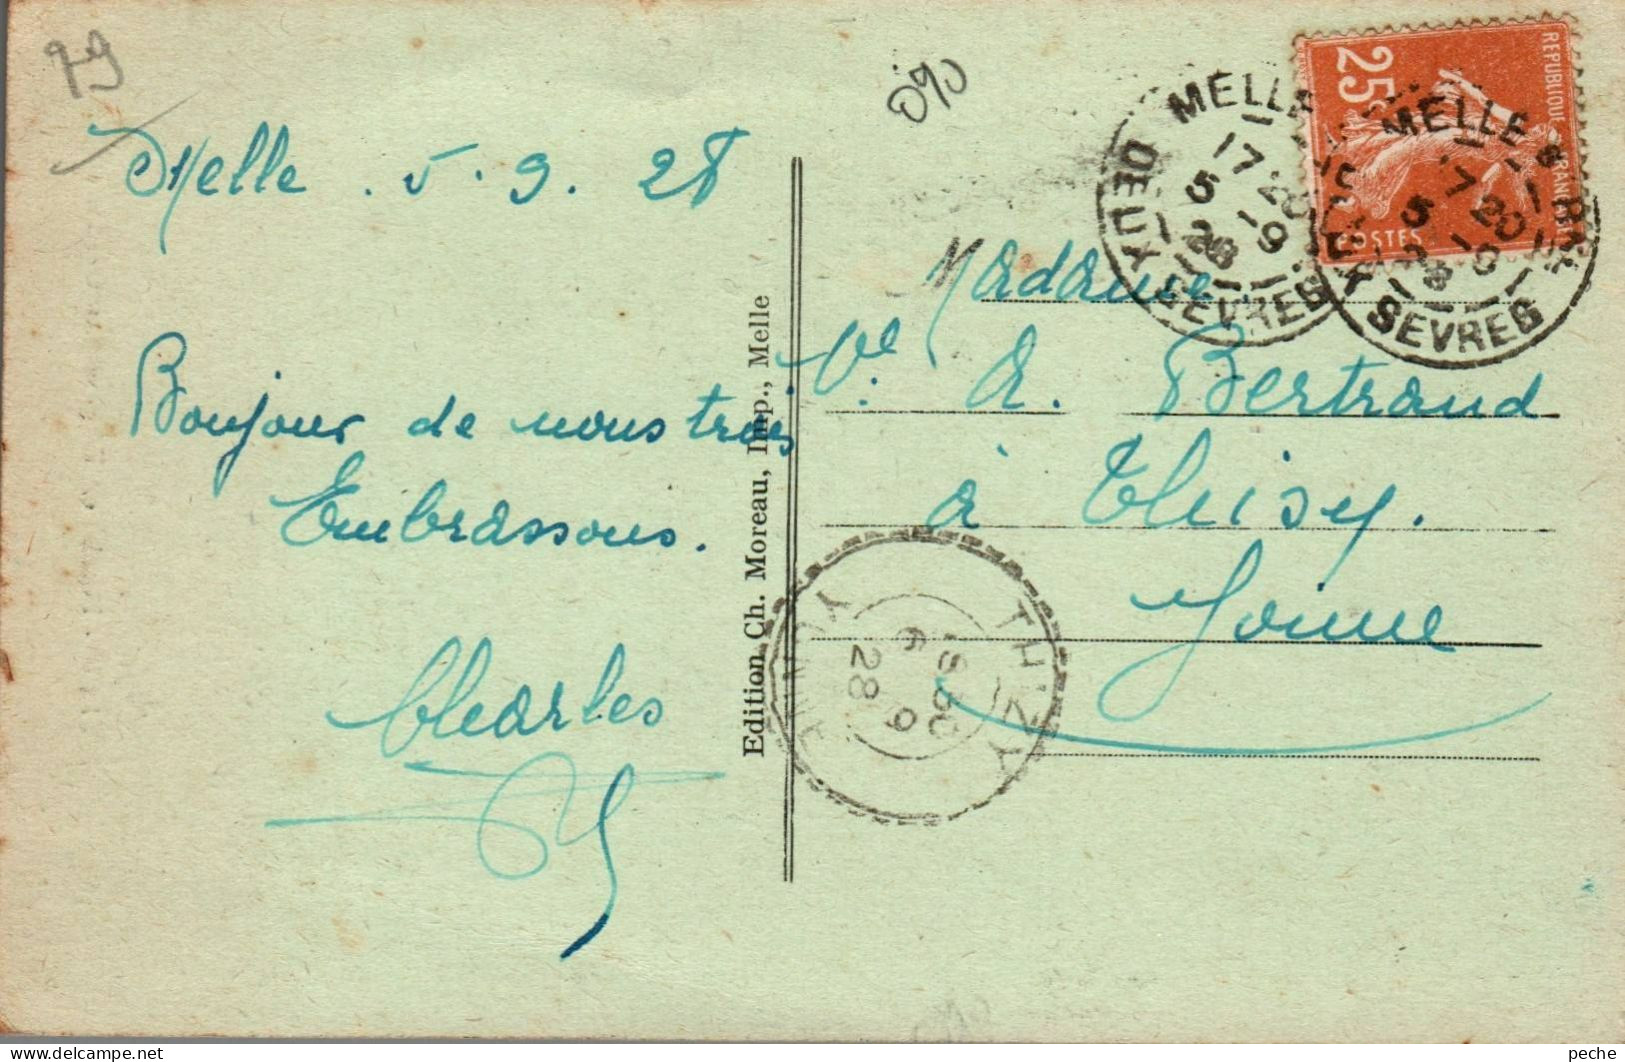 79
Melle . 5. 9. 28
Bonjour de nous trois
Embrassons.
Charles
Edition Ch. Moreau, Imp., Melle
REPUBLIQUE FRANÇAISE
25c
POSTES
MELLE
17 20
5 -9
28
DEUX SEVRES
MELLE
17 20
5 -9
28
SEVRES
Madame
Ve. A. Bertrand
à Thisy.
Yonne
THIZY
6 9
28
YONNE
peche
Delcampe.net